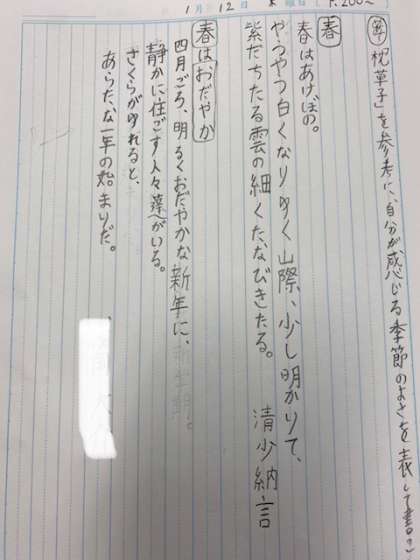 1月12日 P.200〜
「枕草子」を参考に、自分が感じる季節のよさを表して書こ
春
春はあけぼの。
やうやう白くなりゆく山際、少し明かりて、
紫だちたる雲の細くたなびきたる。
清少納言
春は、おだやか
四月ごろ、明るくおだやかな新年に、
静かに住ごす人々達がいる。
さくらがゆれると、
あらたな一年の始まりだ。